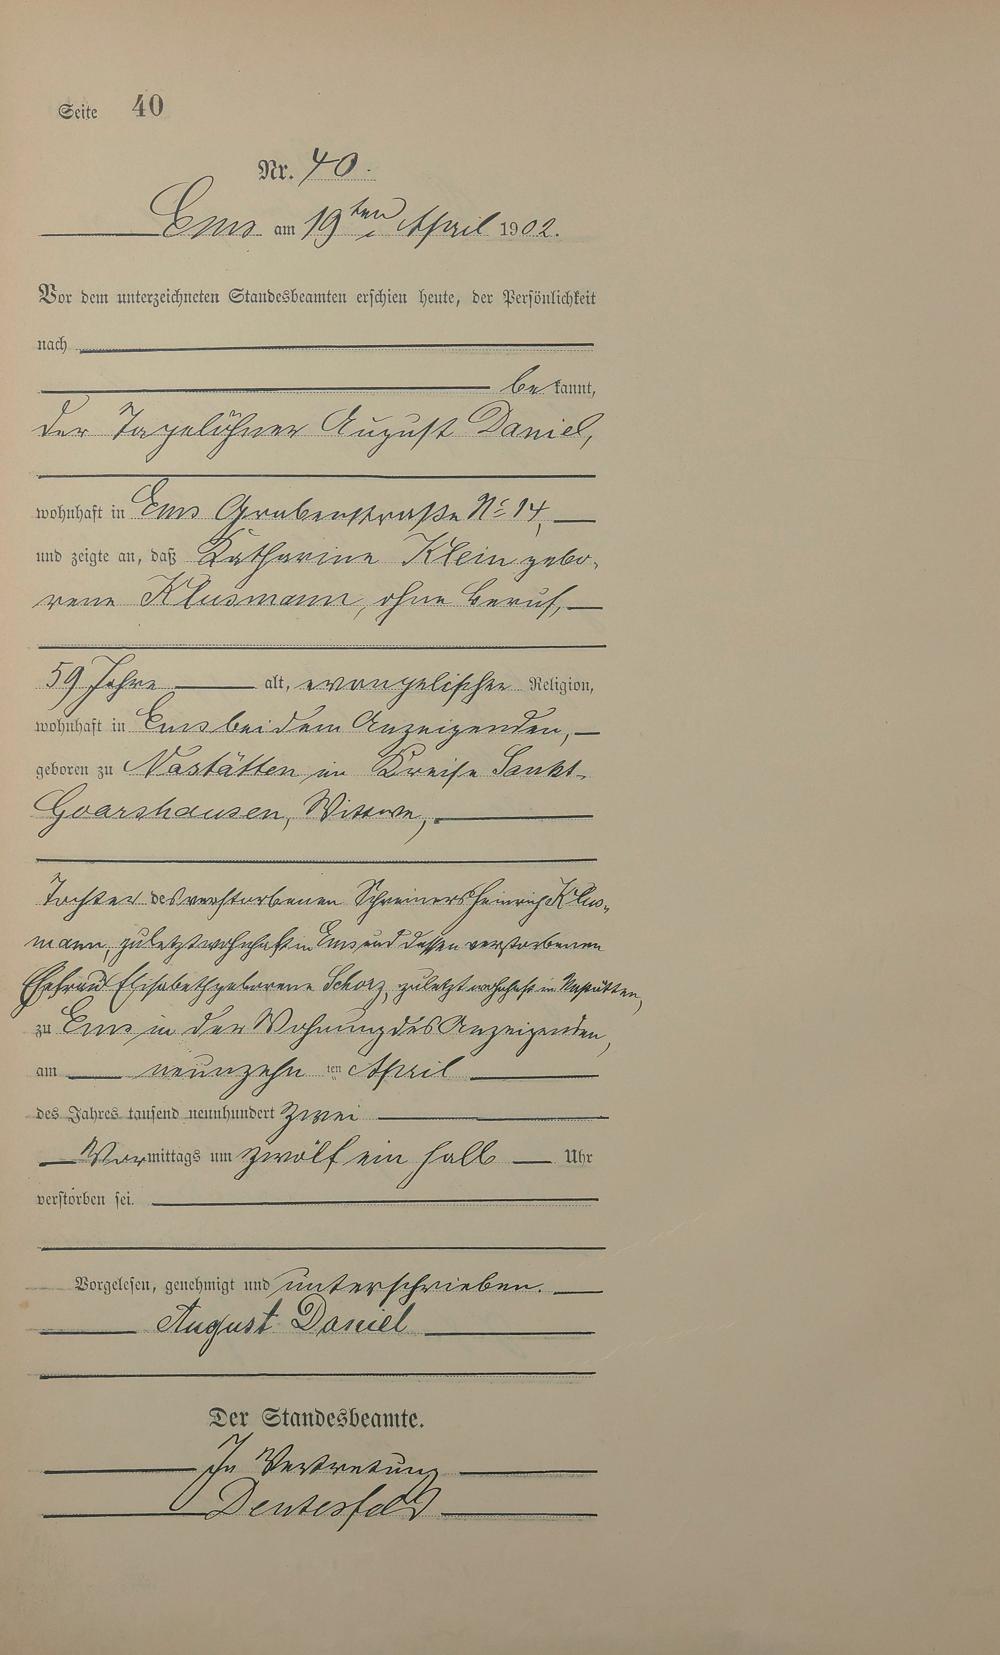 Seite 40
Nr. 40.
Ems am 19ten April 1902.
Vor dem unterzeichneten Standesbeamten erschien heute, der Persönlichkeit
nach
bekannt,
der Tagelöhner August Daniel,
wohnhaft in Ems Grabenstraße No 14,
und zeigte an, daß Katharine Klein gebo-
rene Klusmann, ohne Beruf,
59 Jahre alt, evangelischer Religion,
wohnhaft in Ems bei dem Anzeigenden,
geboren zu Nastätten im Kreise Sankt-
Goarshausen, Wittwe,
Tochter des verstorbenen Schreiners Heinrich Klus-
mann, zuletzt wohnhaft in Ems und dessen verstorbenen
Ehefrau Elisabeth geborene Schorz, zuletzt wohnhaft in Nastätten,
zu Ems in der Wohnung des Anzeigenden,
am neunzehnten April
des Jahres tausend neunhundert zwei
Vormittags um zwölf ein halb Uhr
verstorben sei.
Vorgelesen, genehmigt und unterschrieben.
August Daniel
Der Standesbeamte.
In Vertretung